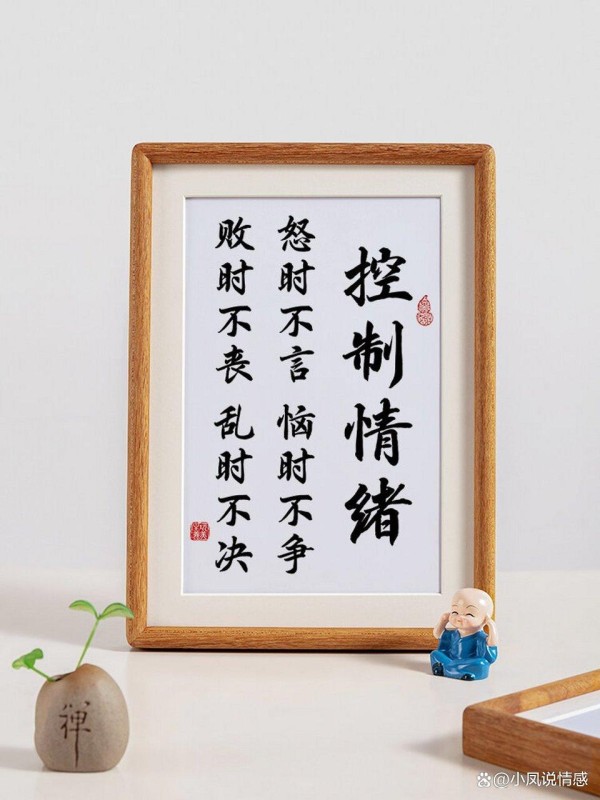 控制情绪
怒时不言 恼时不争
败时不丧 乱时不决
禅
@小凤说情感